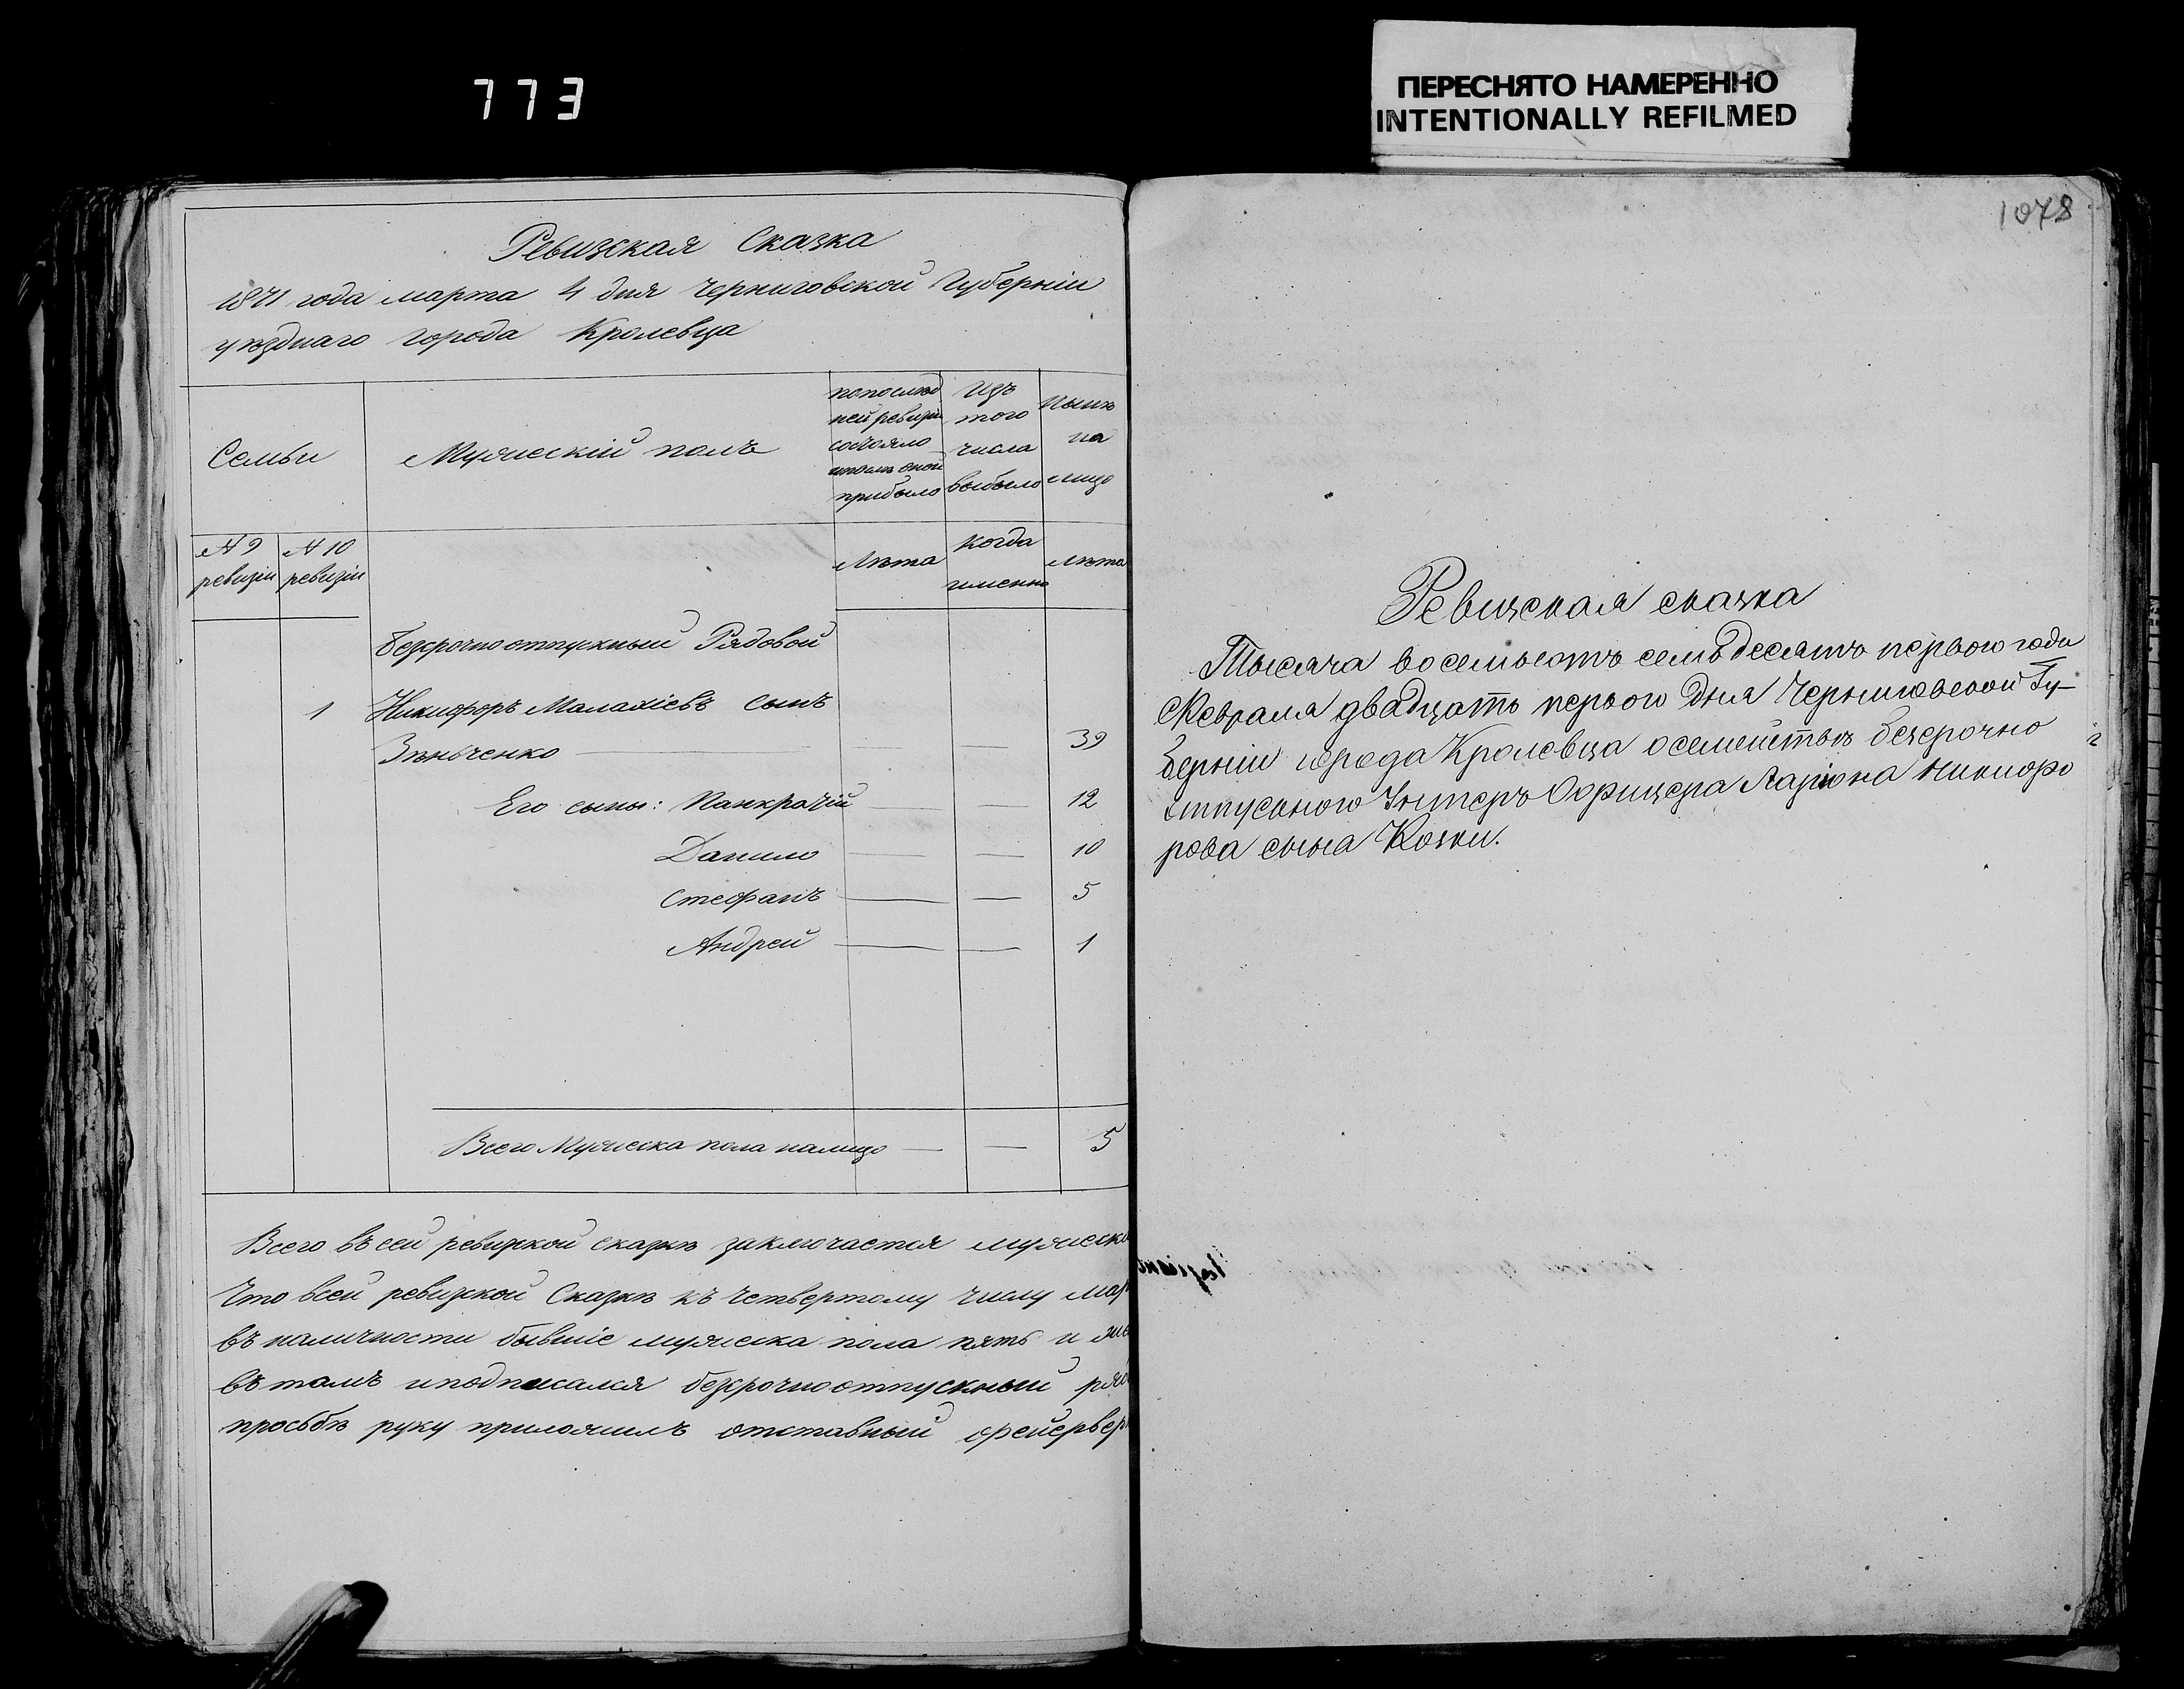 773
ПЕРЕСНЯТО НАМЕРЕННО
INTENTIONALLY REFILMED
Ревизская Сказка
1871 года марта 4 дня Черниговской Губерніи
уѣзднаго города Кролевца
Семьи
Мужескій полъ
попослѣд
ней ревизіи
состояло
ипослѣ оной
прибыло
Изъ
того
числа
выбыло
Нынѣ
на
лицо
N 9
ревизіи
N 10
ревизіи
Лѣта
Когда
именно
Лѣта
Безсрочноотпускный Рядовой
1 Никифоръ Малахіевъ сынъ
Зѣньченко — 39
Его сыны: Панкратій — — 12
Данило — — 10
Стефанъ — — 5
Андрей — — 1
Всего Мужеска пола налицо — — 5
Всего въ сей ревизкой сказкѣ заключается мужеска
Что всей ревизкой Сказкѣ къ четвертому числу мар
въ наличности бывшіе мужеска пола пять и
въ томъ иподписался безсрочноотпускный ряд
просьбѣ руку приложилъ отставный фейервер
1078
Ревизская сказка
Тысяча восемьсотъ семьдесятъ первого года
Февраля двадцать первого дня Черниговской Гу-
берніи города Кролевца осемействѣ безсрочно
отпускного Унтеръ Офицера Ларіона Никифо
рова сына Козки.